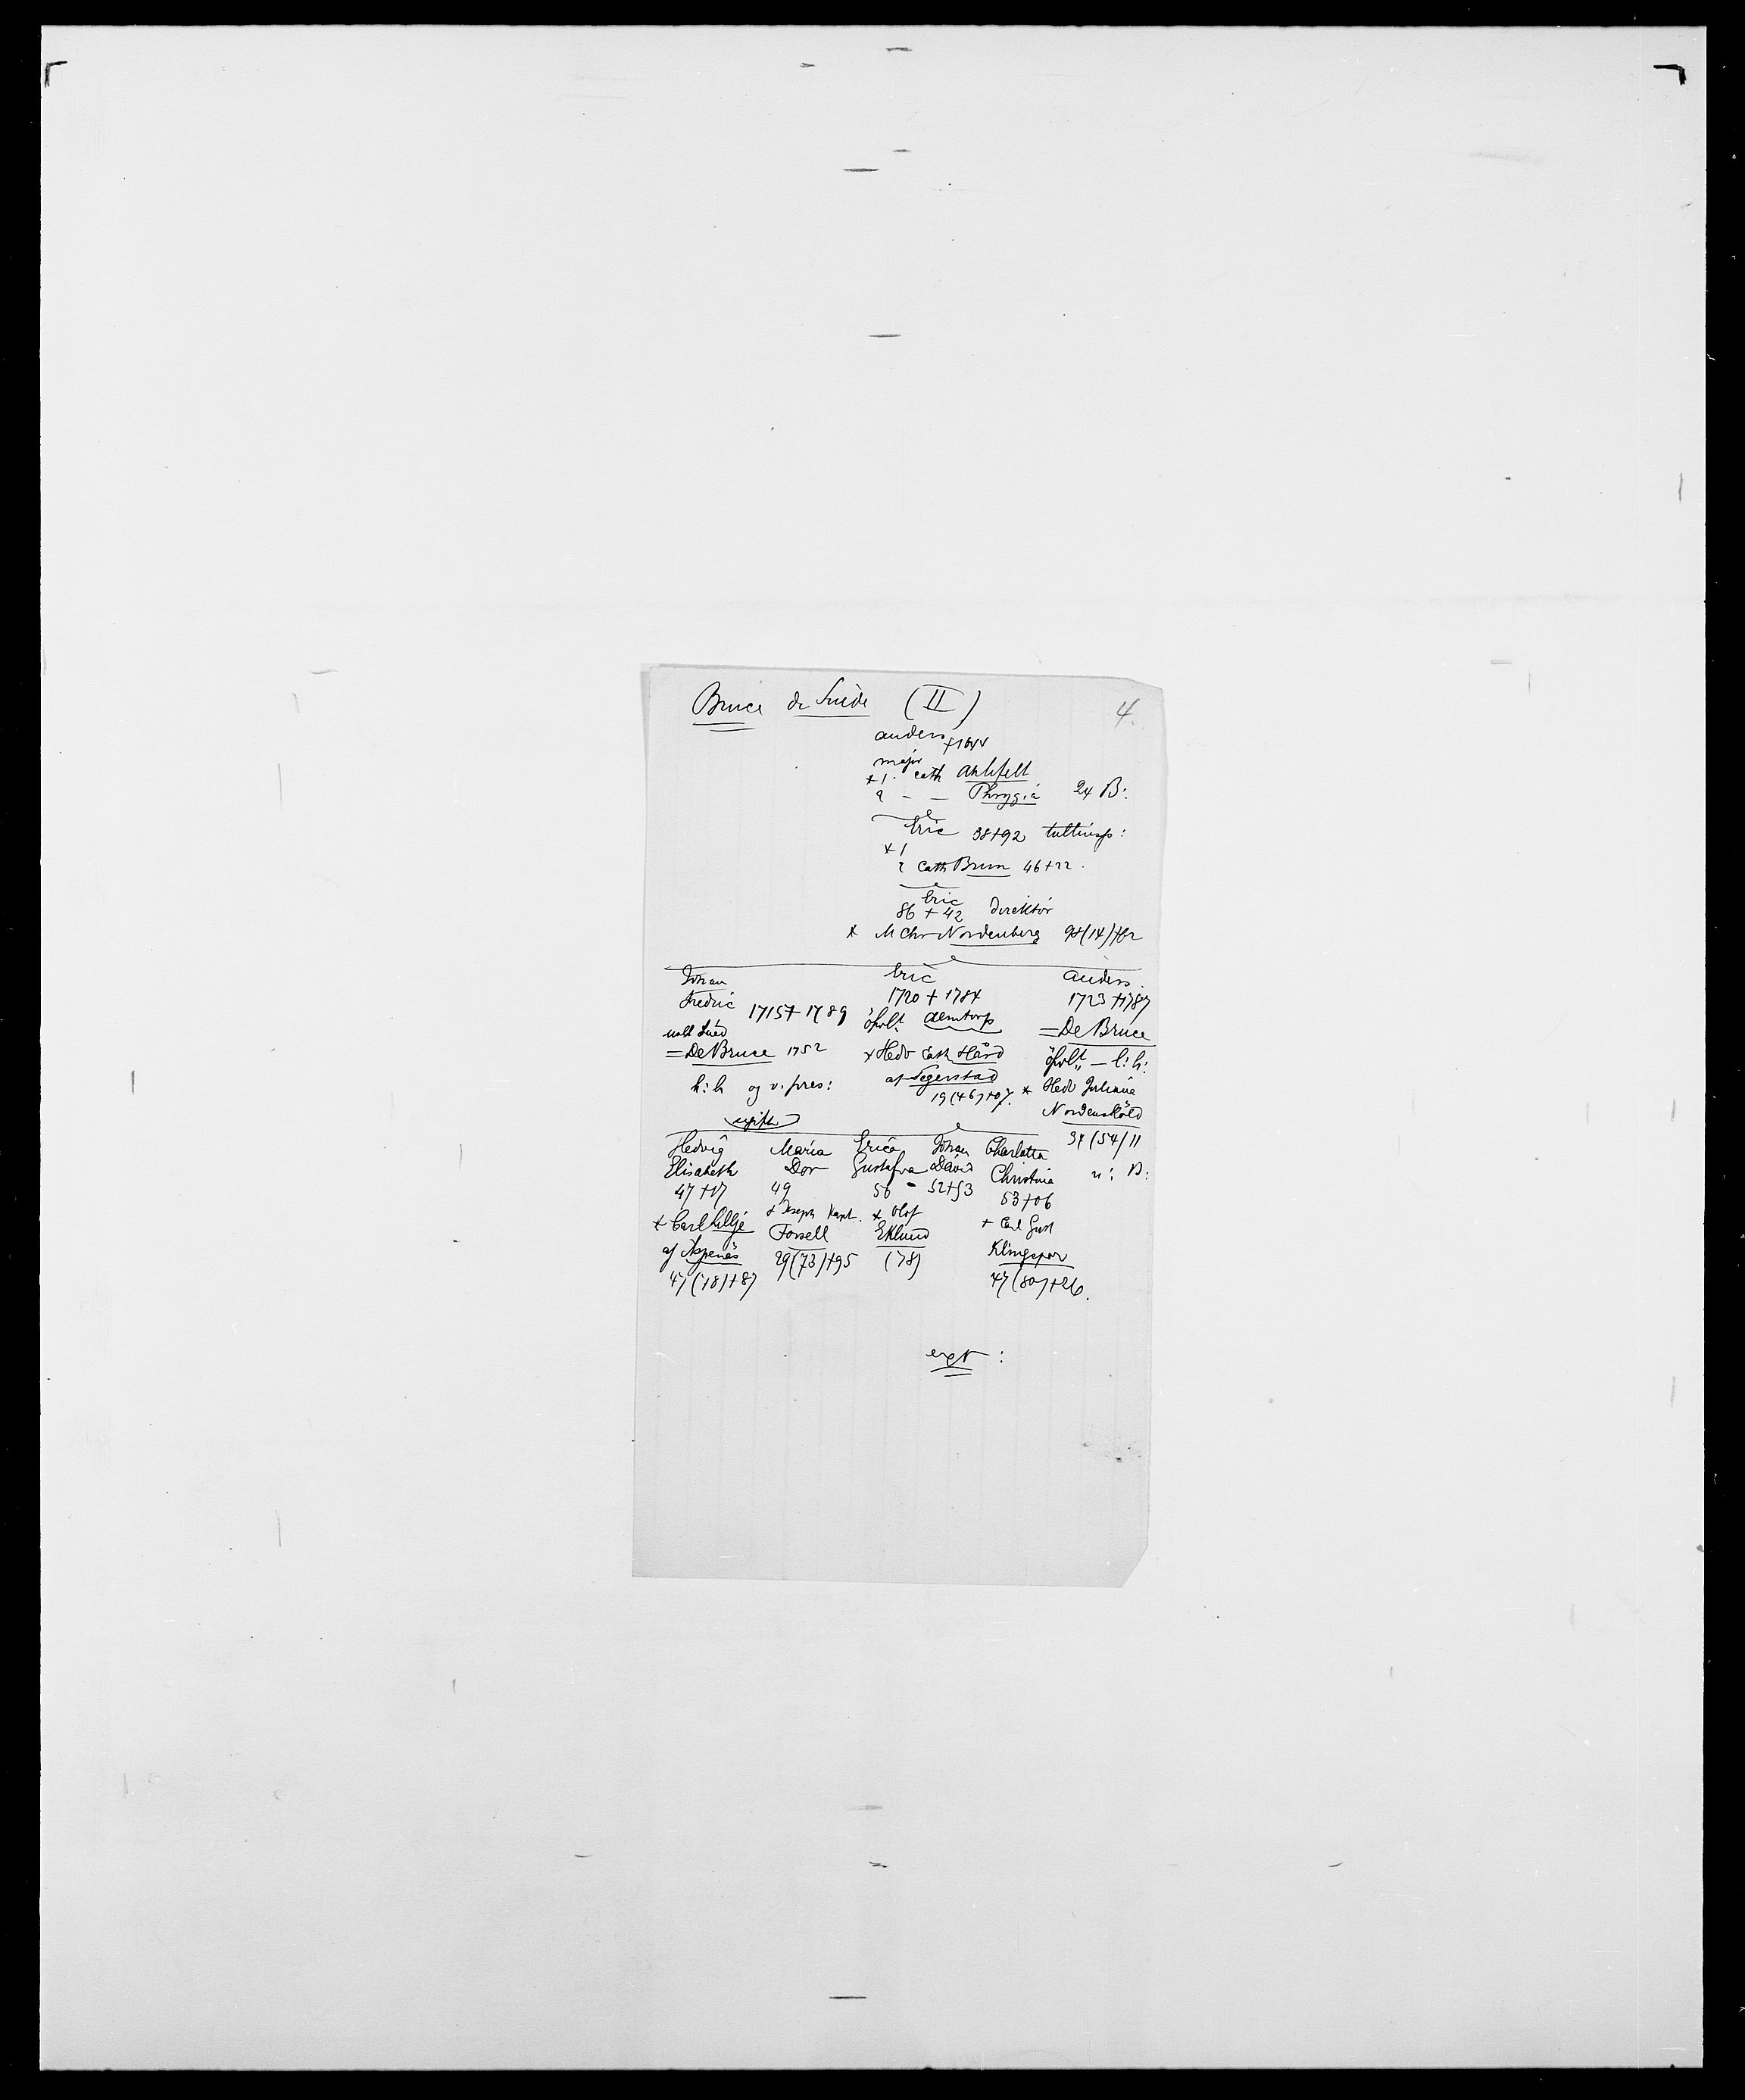 Bruce de Suède (II) 4.
Anders
major
x 1. Cath Ahlefelt
2 - - Phrygia 24 B:
Eric 38+92
x 1
2 Cath Brun 46+22.
Eric
86 + 42 Direktör
x M Chr Nordenberg
Johan Eric Anders.
Fredric 1715+1789 1720 + 1784 1723+1787
öfvlt Almtorp = De Bruce
= De Bruce 1752 x Hedv Cath Hård öfvlt - l: h:
h: h og v. pres: af Segerstad x Hedv Juliana
19(46)+07. Nordensköld
34(54)11
Hedvig Maria Erica Johan Charlotta
Elisabeth Dor Gustafva David Christina u: B:
47+17 49 50 - 52+53 53+06
x Carl Lillje x Joseph Kapt. x Olof + Carl Gust
af Aspenäs Forsell Eklund Klingspor
47(78)+87 29(73)+95 (78) 47(80)+26.
ext: